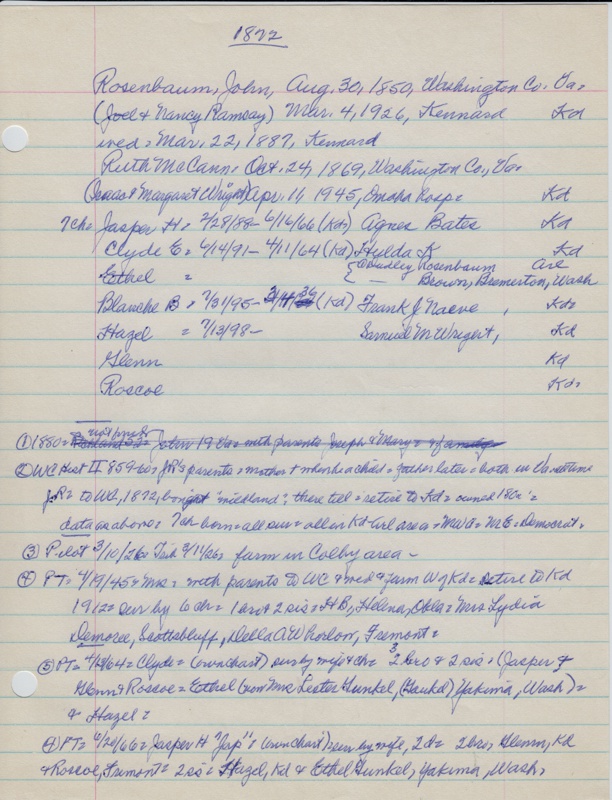 1872
Rosenbaum, John, Aug. 30, 1850, Washington Co. Va.
(Joel & Nancy Ramsay) Mar. 4, 1926, Kennard Kd
wed = Mar. 22, 1887, Kennard
Ruth McCann = Oct. 24, 1869, Washington Co., Va.
(Isaac & Margaret Wright) Apr. 11, 1945, Omaha hosp = Kd
7ch = Jasper H = 2/28/88 - 6/16/66 (Kd) Agnes Bates Kd
Clyde E = 6/14/91 - 4/11/64 (Kd) Hulda K Kd
Ethel = { Dudley Rosenbaum Ore
— Brown, Bremerton, Wash
Blanche B = 7/31/95 - (Kd) Frank J Naeve, Kd =
Hazel = 7/13/98 - Samuel M Wrigert, Kd
Glenn Kd
Roscoe Kd =
① 1850 = John 19 Va = with parents Joseph & Mary =
② WC Hist II 859-60 = JR's parents = mother + when he a child = father later = both in Va
JR = to WC, 1872, bought "midland", there till = retire to Kd = owned 180a =
data as above = 7ch born = all sur = all in Kd-Arl area = MWA = ME = Democrat.
③ Pilot 3/10/26 = Trib 3/11/26 = farm in Colby area -
④ PT = 4/19/45 = Mrs = with parents to WC & wed & farm W of Kd = retire to Kd
1912 = sur by 6 ch = 1 bro & 2 sis = HB, Helena, Okla = Mrs Lydia
Demoree, Scottsbluff, Della A Whorlow, Fremont =
⑤ PT = 4/16/64 = Clyde = (own chart) sur by wife & ch = 3 bro & 2 sis = (Jasper &
Glenn & Roscoe = Ethel (now Mrs Lester Gunkel, (Gaukel) Yakima, Wash) =
& Hazel =
④ PT = 6/20/66 = Jasper H "Jap" = (own chart) = sur by wife, 2d = 2 bro = Glenn, Kd
& Roscoe, Fremont = 2 sis = Hazel, Kd & Ethel Gunkel, Yakima, Wash.